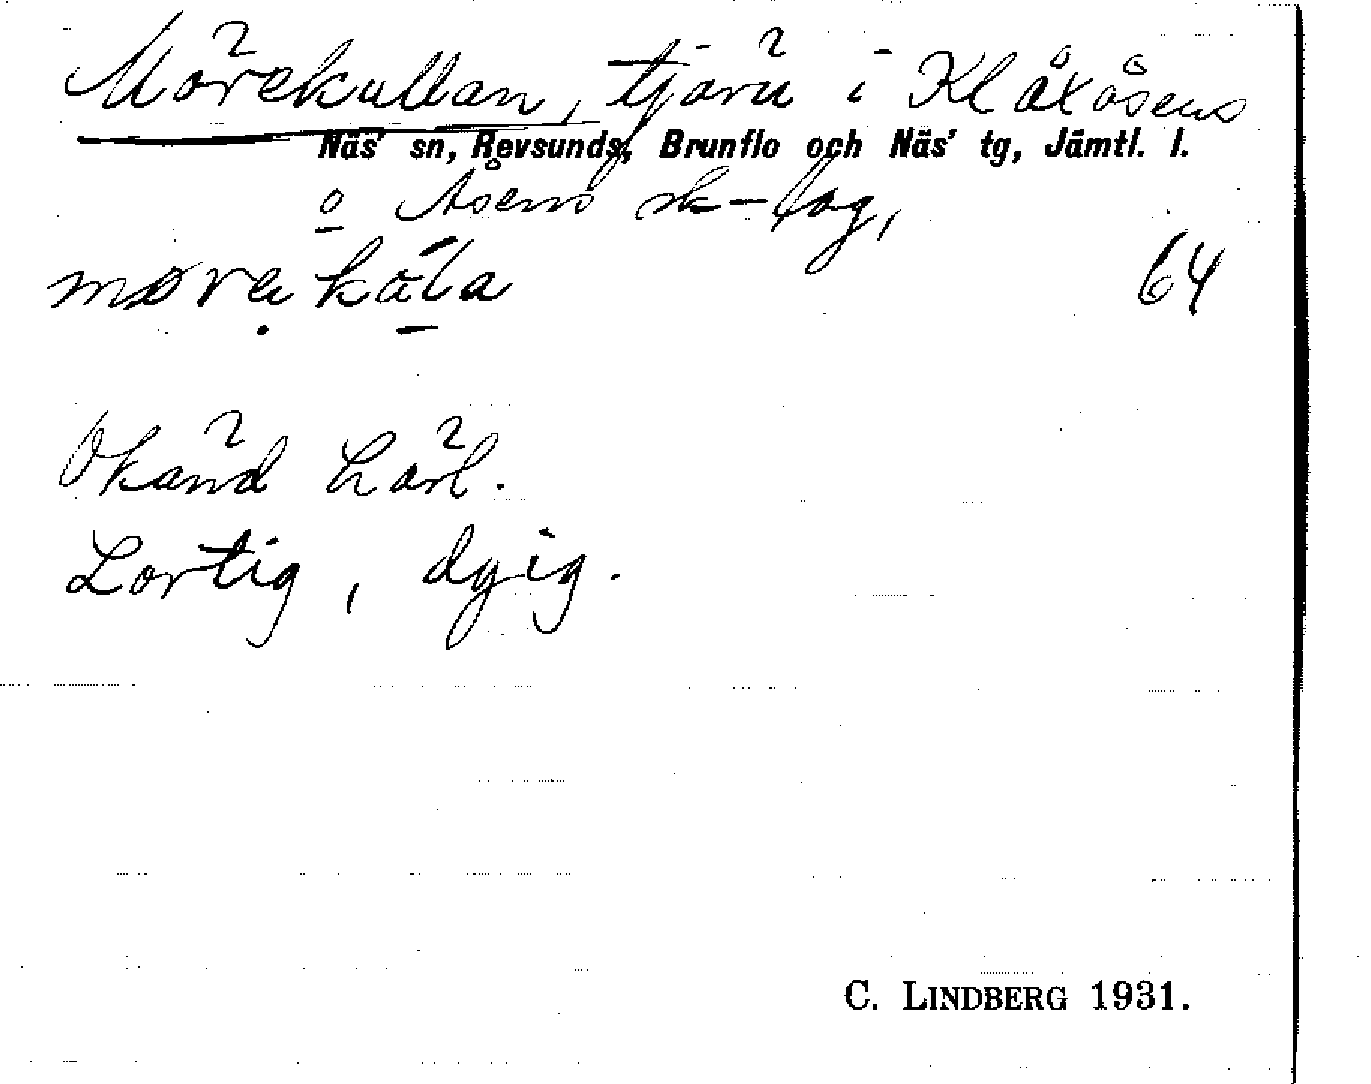 Mörekullan, tjärn i Klåxåsens
Näs' sn, Revsunds, Brunflo och Näs' tg, Jämtl. l.
o Åsens sk-lag,
64
Okänd härl.
Lortig, dyig.
C. LINDBERG 1931.